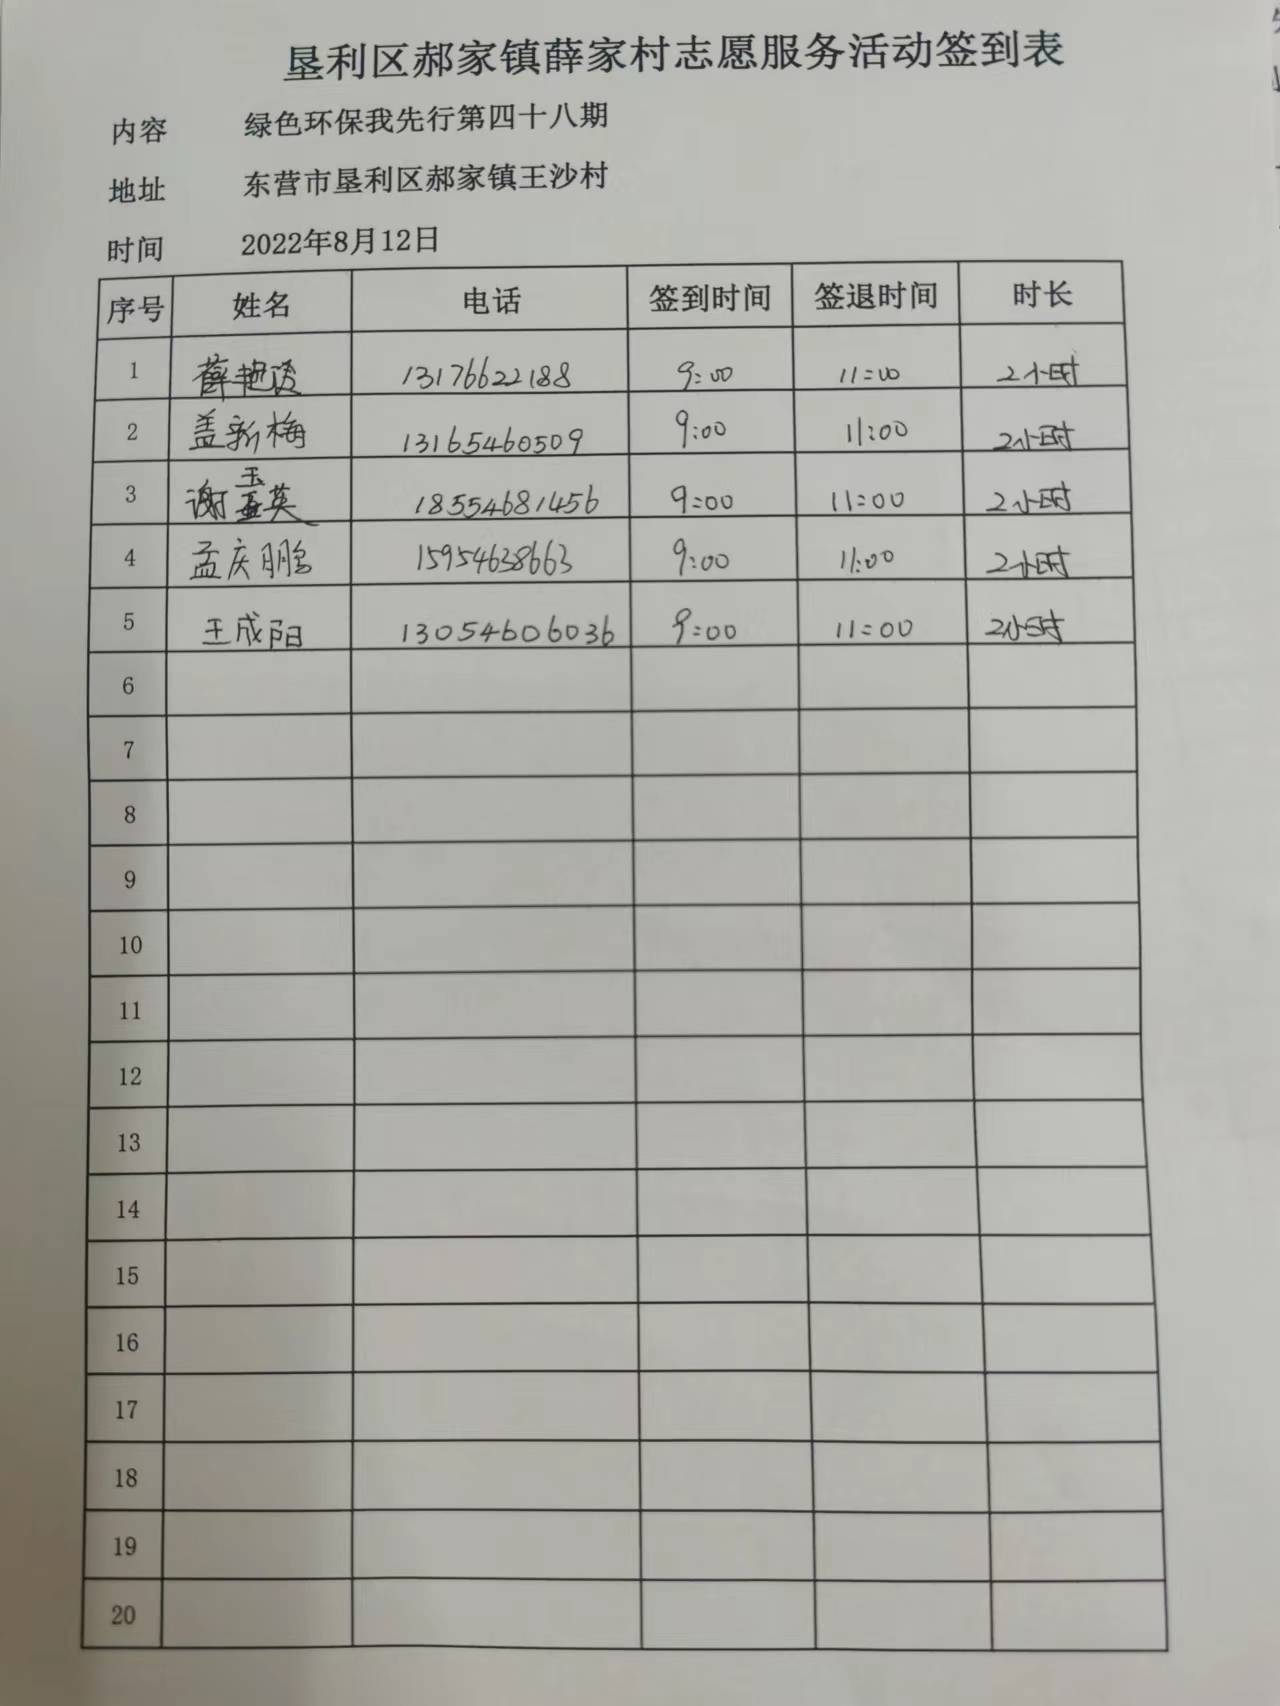 垦利区郝家镇薛家村志愿服务活动签到表
内容 绿色环保我先行第四十八期
地址 东营市垦利区郝家镇王沙村
时间 2022年8月12日
序号 姓名 电话 签到时间 签退时间 时长
1 薛艳 13176622188 9:00 11:00 2小时
2 盖新梅 13165460509 9:00 11:00 2小时
3 谢玉英 18554681456 9:00 11:00 2小时
4 孟庆鹏 15954638663 9:00 11:00 2小时
5 王成阳 13054606036 9:00 11:00 2小时
6
7
8
9
10
11
12
13
14
15
16
17
18
19
20